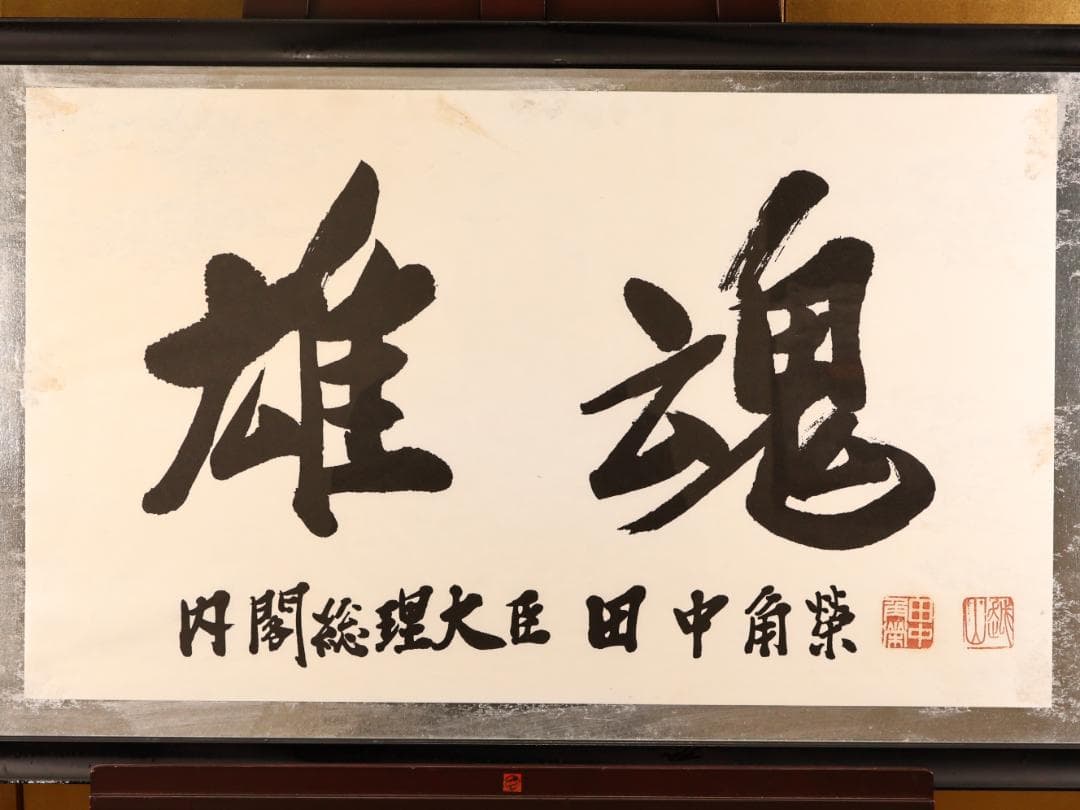 雄魂
内閣総理大臣 田中角榮
田中角榮
越山